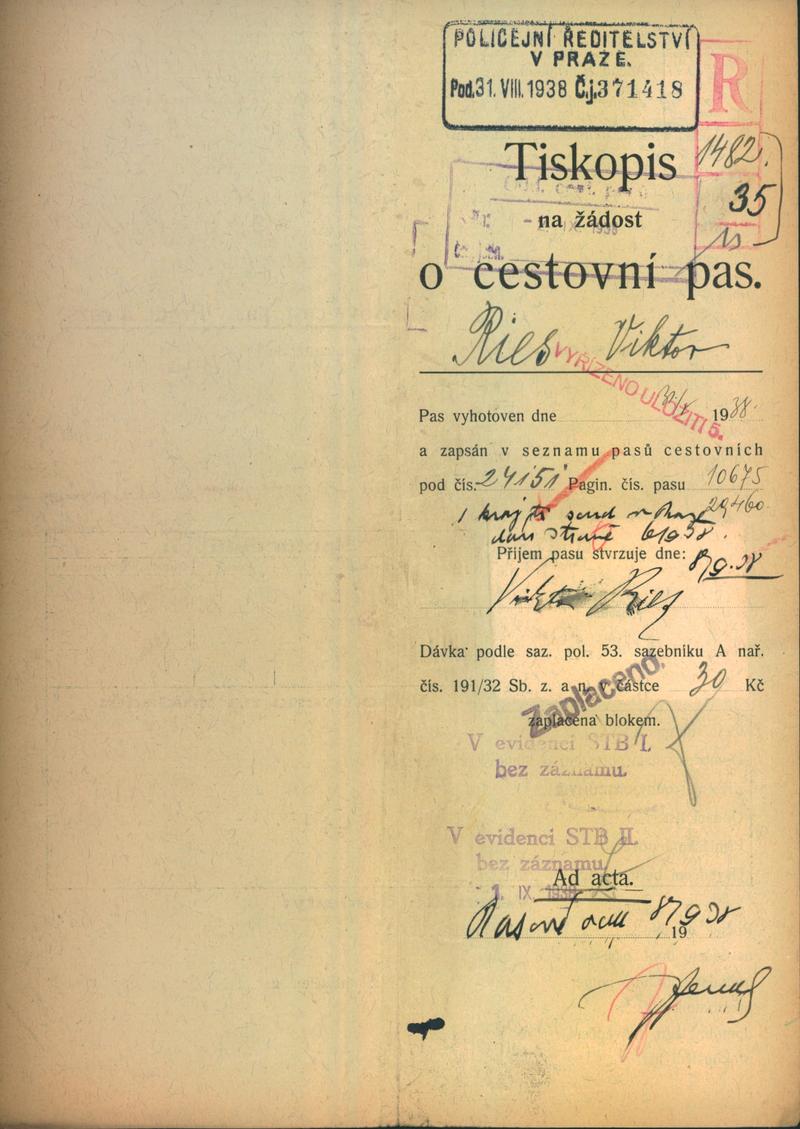 POLICEJNÍ ŘEDITELSTVÍ
V PRAZE.
Pod. 31. VIII. 1938 Č.j. 371418
R
1482.
35
Tiskopis
na žádost
o cestovní pas.
Ries Viktor
VYŘÍZENO ULOŽITI 5.
Pas vyhotoven dne 1938.
a zapsán v seznamu pasů cestovních
pod čís. 24151 Pagin. čís. pasu 10675
29460
Příjem pasu stvrzuje dne: 8/9.38
Viktor Ries
Dávka podle saz. pol. 53. sazebníku A nař.
čís. 191/32 Sb. z. a n. v částce 30 Kč
Zaplaceno.
zaplacena blokem.
V evidenci STB I.
bez záznamu.
V evidenci STB II.
bez záznamu
1. IX. 1938
Ad acta.
8/9 38
19